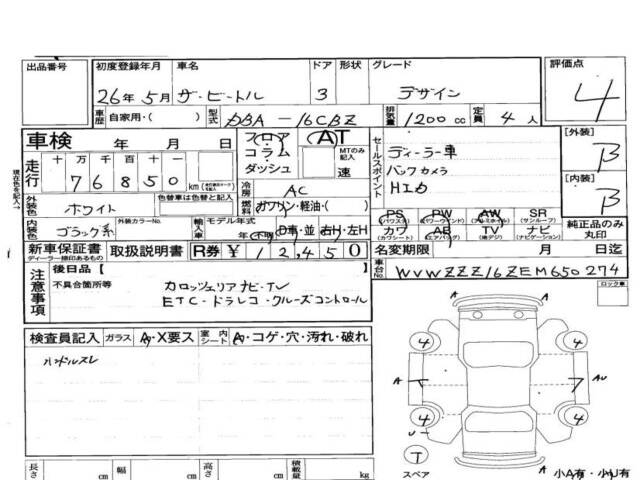 出品番号 初度登録年月 車名 ドア 形状 グレード 評価点
26年 5月 ザ・ビートル 3 デザイン 4
車歴 自家用・( ) 型式 DBA-16CBZ 排気量 1200cc 定員 4人
車検 年 月 日 フロア コラム ダッシュ AT MTのみ記入 速 セールスポイント ディーラー車 [外装] B
走行 十万 千百十 76850 km 冷房 AC バックカメラ
現在色を記入→ 外装色 ホワイト 色替車は色替と記入 燃料 ガソリン・軽油・( ) HID [内装] B
内装色 ブラック系 外装カラーNo. 輸入車 モデル年式 年(不明) D車・並 右H・左H
PS (パワステ) PW (パワーウインド) AW (アルミホイル) SR (サンルーフ)
カワ (カワシート) AB (エアバッグ) TV (地デジ) ナビ (ナビゲーション) 純正品のみ丸印
新車保証書 ディーラー捺印あるもの 取扱説明書 R券 ¥12,450 名変期限 月 日
注意事項 後日品 [ ] 台No. WVWZZZ16ZEM650274
不具合箇所等 カロッツェリア ナビ・TV
ETC・ドラレコ・クルーズコントロール
ロック車
検査員記入 ガラス A・X要ス 室内シート A・コゲ・穴・汚れ・破れ
ハンドルスレ
A
4 4
A AU
4 4
U
T
スペア A 小A有・小U有
長さ cm 幅 cm 高さ cm 積載量 kg